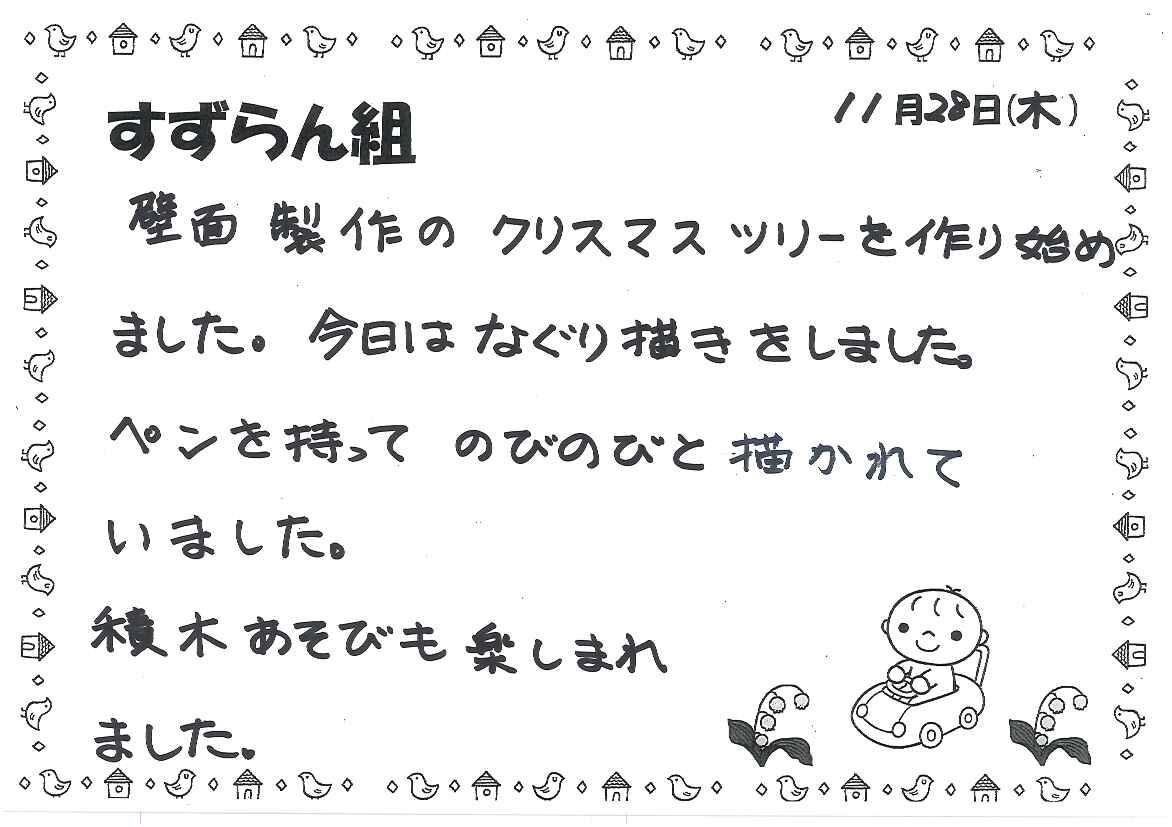 すずらん組
11月28日(木)
壁面製作のクリスマスツリーを作り始め
ました。今日はなぐり描きをしました。
ペンを持ってのびのびと描かれて
いました。
積木あそびも楽しまれ
ました。